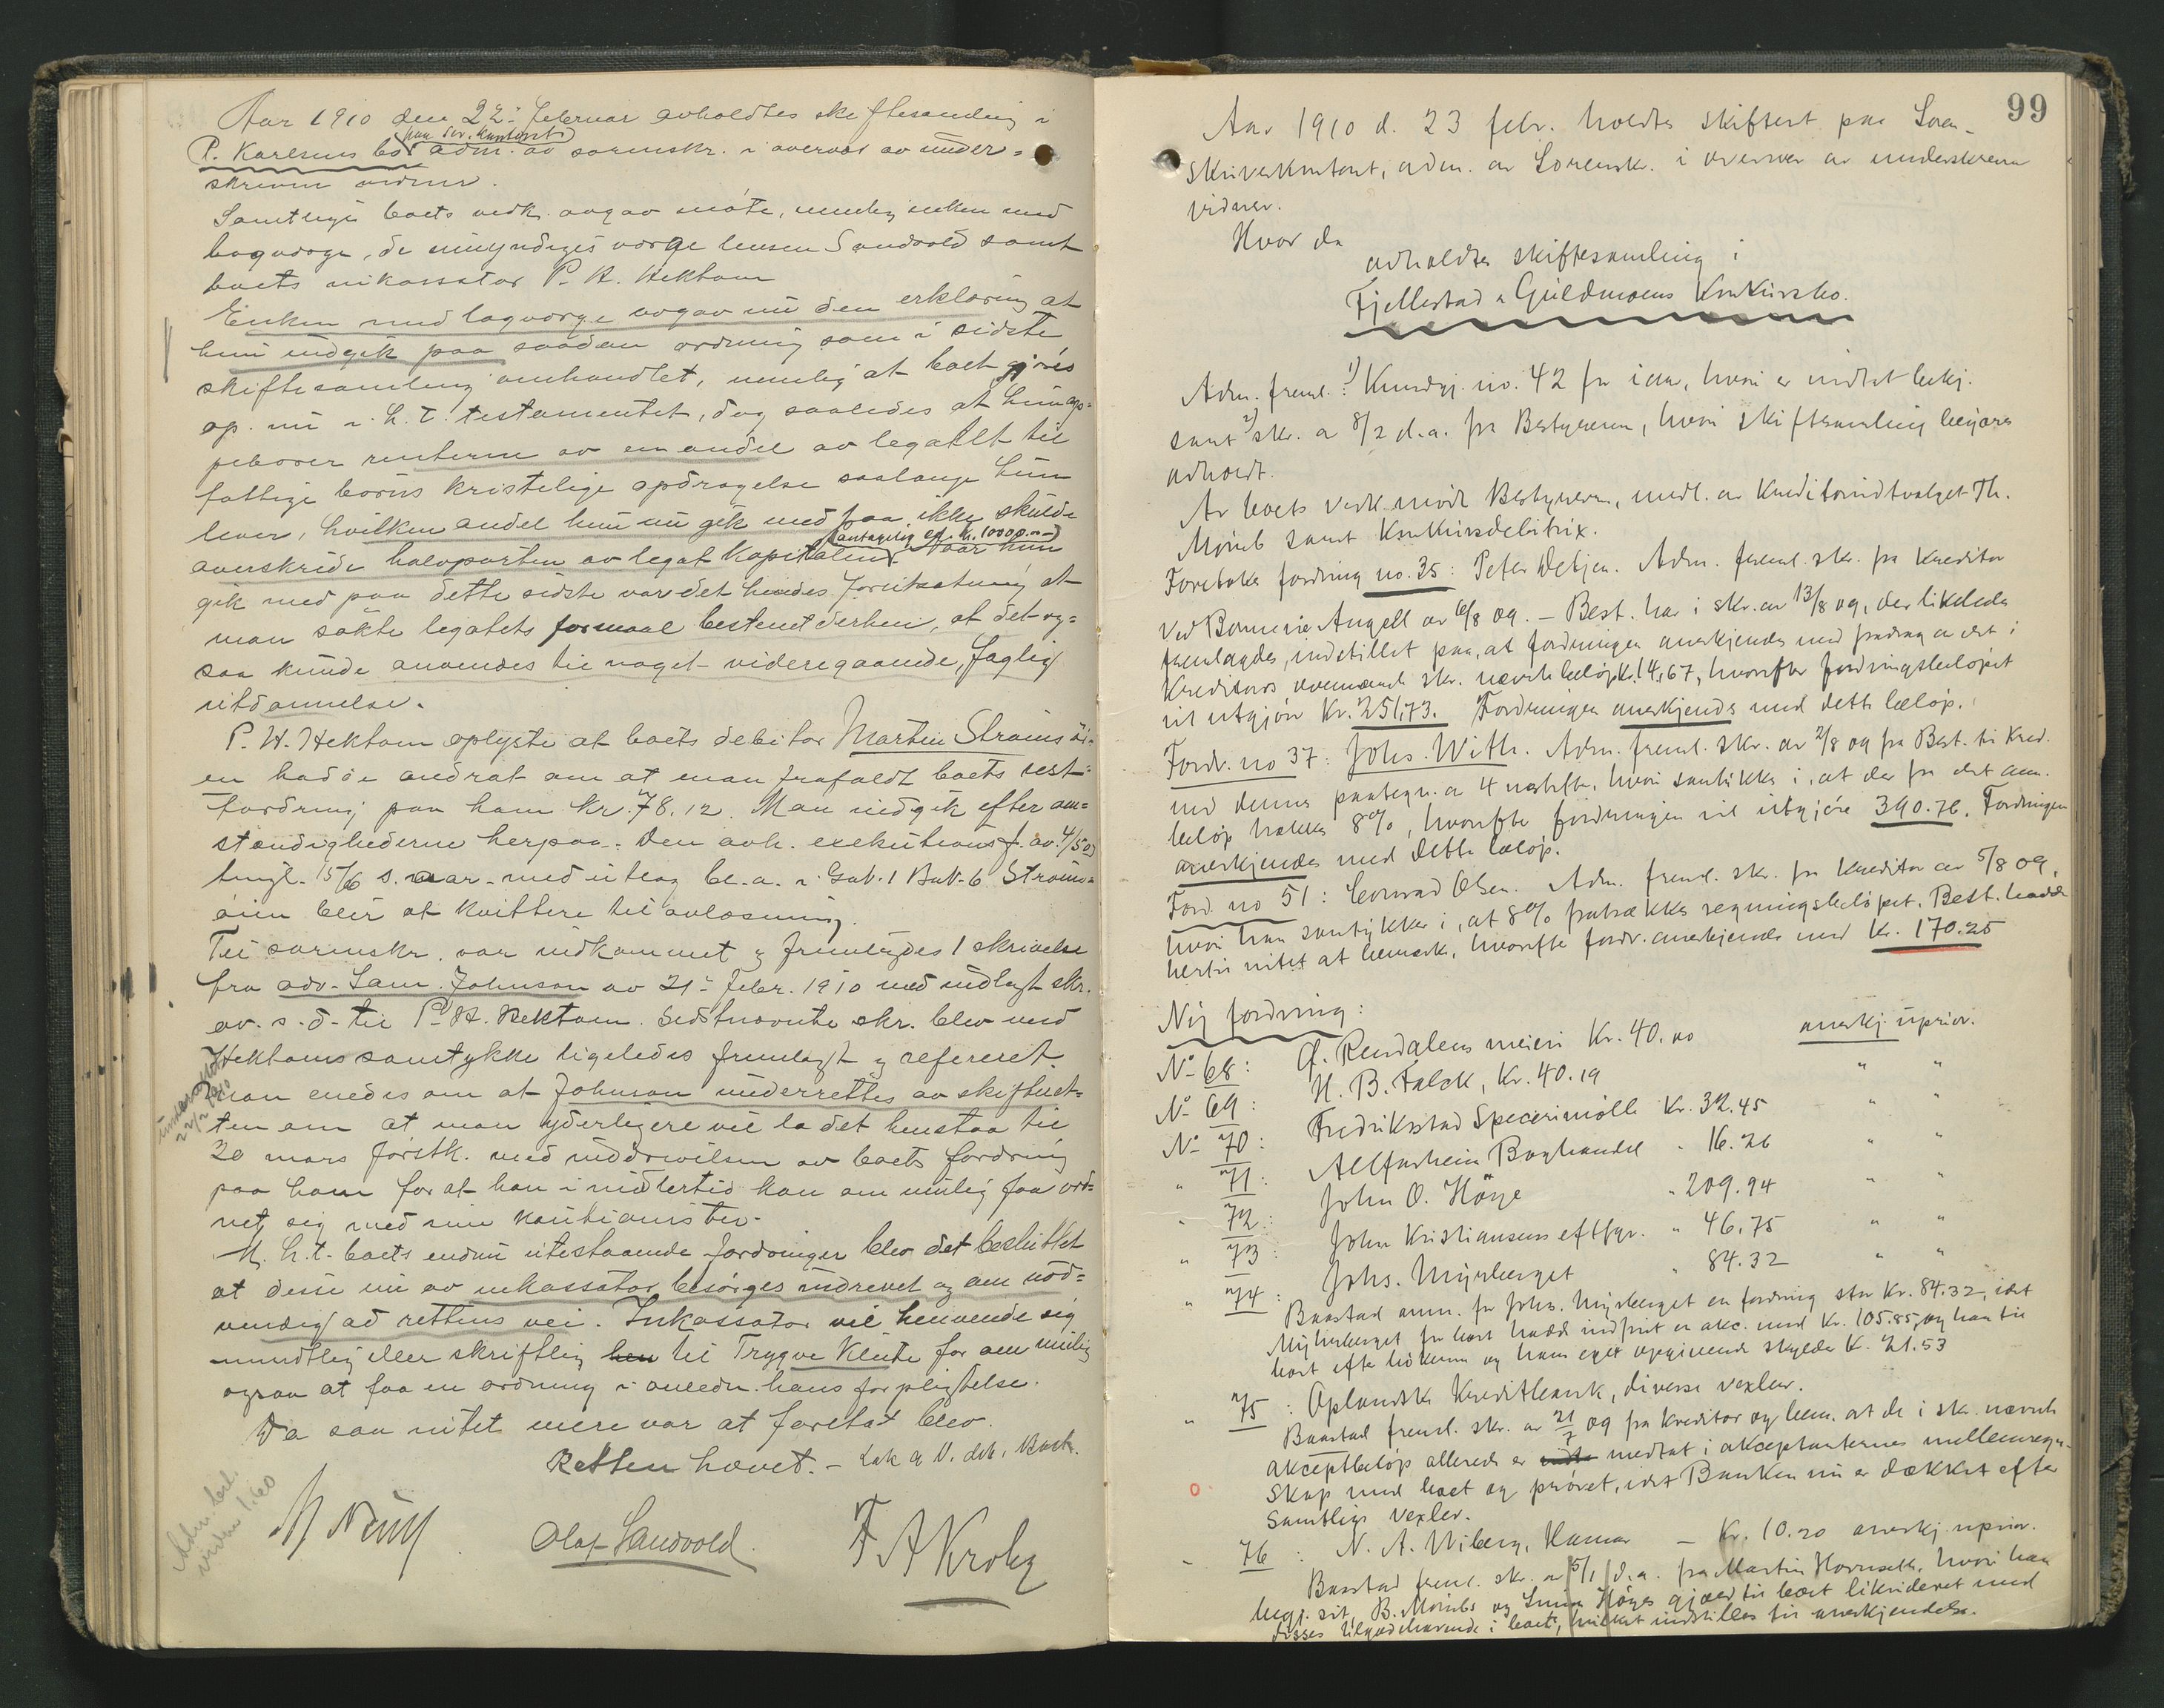 Aar 1910 den 22: februar avholdtes skiftesamling i
paa sor. kontoret
P. Karlsens bo adm. av sorenskr. i overvær av under=
skrevne vidner.
Samtlige boets vedk. avgav møte, nemlig enken med
lagværge, de umyndiges værge lensm Sandvold samt
boets inkassator P. H. Hektoen
Enken med lagværge avgav nu den erklæring at
hun indgik paa saadan ordning som i sidste
skiftesamling omhandlet, nemlig at boet gjøres
op nu i h. t. testamentet, dog saaledes at hun op=
pebærer renterne av en andel av legatet til
fattige børns kristelige opdragelse saalange hun
lever, hvilken andel hun nu gik med paa ikke skulde
(antagelig ca. kr. 10000.00)
overskride halvparten av legat kapitalen. Naar hun
gik med paa dette sidste var det hendes forutsætning at
man søkte legatets formaal bestemt derhen, at det og=
saa kunde anvendes til noget videregaaende, faglig
utdannelse.
P. H. Hektoen oplyste at boets debitor Martin Strømsøi=
en hadde andrat om at man frafaldt boets rest=
fordring paa ham kr. 78.12. Man indgik efter om=
stændighederne herpaa. Den avh. exekutionsf. av 4/5 09
tingl. 15/6 s. aar med utlæg bl. a. i Gav. 1 Bnv. 6 Strøms=
øien blir at kvittere til avlæsning.
Til sorenskr. var indkommet og fremlagdes 1 skrivelse
fra adv. Sam. Johnson av 21: febr. 1910 med indlagt skr.
av s. d. til P. H. Hektoen. Sidstnævnte skr. blev med
Hektoens samtykke ligeledes fremlagt og refereret.
Man enedes om at Johnson underrettes av skifteret=
ten om at man yderligere vil la det henstaa til
20 mars førstk. med inddrivelsen av boets fordring
paa ham for at han i midlertid kan om mulig faa ord=
net sig med sine kautionister.
M. h. t. boets endnu utestaaende fordringer blev det besluttet
at disse nu av inkassator besørges inddrevet og om nød=
vendig ad rettens vei. Inkassator vil henvende sig
mundtlig eller skriftlig hen til Trygve Klüde for om mulig
ogsaa at faa en ordning i anledn. hans forpligtelse.
Da saa intet mere var at foreta blev
Retten hævet. –
Olaf Sandvold. F A Krohg
99
Aar 1910 d. 23 febr. holdtes skifteret paa Soren-
skriverkontoret, adm. av Sorenskr. i overvær av underskrevne
vidner.
Hvor da
avholdtes skiftesamling i
Fjellestad & Guldmoens Konkursbo.
Adm. freml.: 1) Kundgj. no. 42 for iaar, hvori er indtat bekj.
samt 2) skr. a 8/2 d.a. fra Bestyreren, hvori skiftesamling begjæres
avholdt.
Av boets vedk. mødte Bestyreren, medl. av Kreditorutvalget Th.
Mørub samt Konkursdebitrix.
Foretokes fordring no. 35: Peter Detjen. Adm. freml. skr. fra Kreditor
ved Bonnevie Angell av 6/8 09. – Best. har i skr. av 13/8 09, der likeledes
fremlagdes, indstillet paa, at fordringen anerkjendes med fradrag av det i
Kreditors ovennævnte skr. nævnte beløp kr. 14,67, hvorefter fordringsbeløpet
vil utgjøre Kr. 251,73. Fordringen anerkjendes med dette beløp.
Fordr. no 37: Johs. With. Adm. freml. skr. av 2/8 09 fra Best. til Kred.
med dennes paategn. a 4 næstefter, hvori samtykkes i, at der fra det anm.
beløp trækkes 8%, hvorefter fordringen vil utgjøre 390.76. Fordringen
anerkjendes med dette beløp.
Ford. no 51: Conrad Olsen. Adm. freml. skr. fra Kreditor av 5/8 09,
hvori han samtykker i, at 8% fratrækkes regningsbeløpet. Best. hadde
hertil intet at bemerke, hvorefter fordr. anerkjendes med Kr. 170.25
Ny fordring:
No 68: Ø. Rendalens meieri Kr. 40.00 anerkj. uprior.
No 69: H. B. Falck, Kr. 40.19 " "
No 70: Fredrikstad Specerimølle Kr. 32.45 " "
" 71: Allfarheim Boghandel " 16.26 " "
" 72: John O. Høye " 209.94 " "
" 73: John Kristiansens eftfgr. " 46.75 " "
" 74: Johs. Myrberget " 84.32
Baastad anm. for Johs. Myrberget en fordring stor Kr. 84.32, idet
Myhrberget for boet hadde indfriet en akc. med Kr. 105.85, og han til
boet efter bøkerne og hans eget opgivende skylder K. 21.53
" 75: Oplandsk Kreditbank, diverse vexler.
Baastad freml. skr. av 21/7 09 fra Kreditor og bem. at de i skr. nævnte
akceptbeløp allerede er medtat i akceptanternes mellemregn-
skap med boet og prøvet, idet Banken nu er dækket efter
samtlige vexler.
" 76: N. A. Wiberg, Hamar – Kr. 10.20 anerkj. uprior.
Baastad freml. skr. a 5/1 d.a. fra Martin Hornseth, hvori han
begj. sit, B. Mørubs og Høyes gjæld til boet likvideret med
disses tilgodehavende i boet, hvilket indstilles til anerkjendelse.